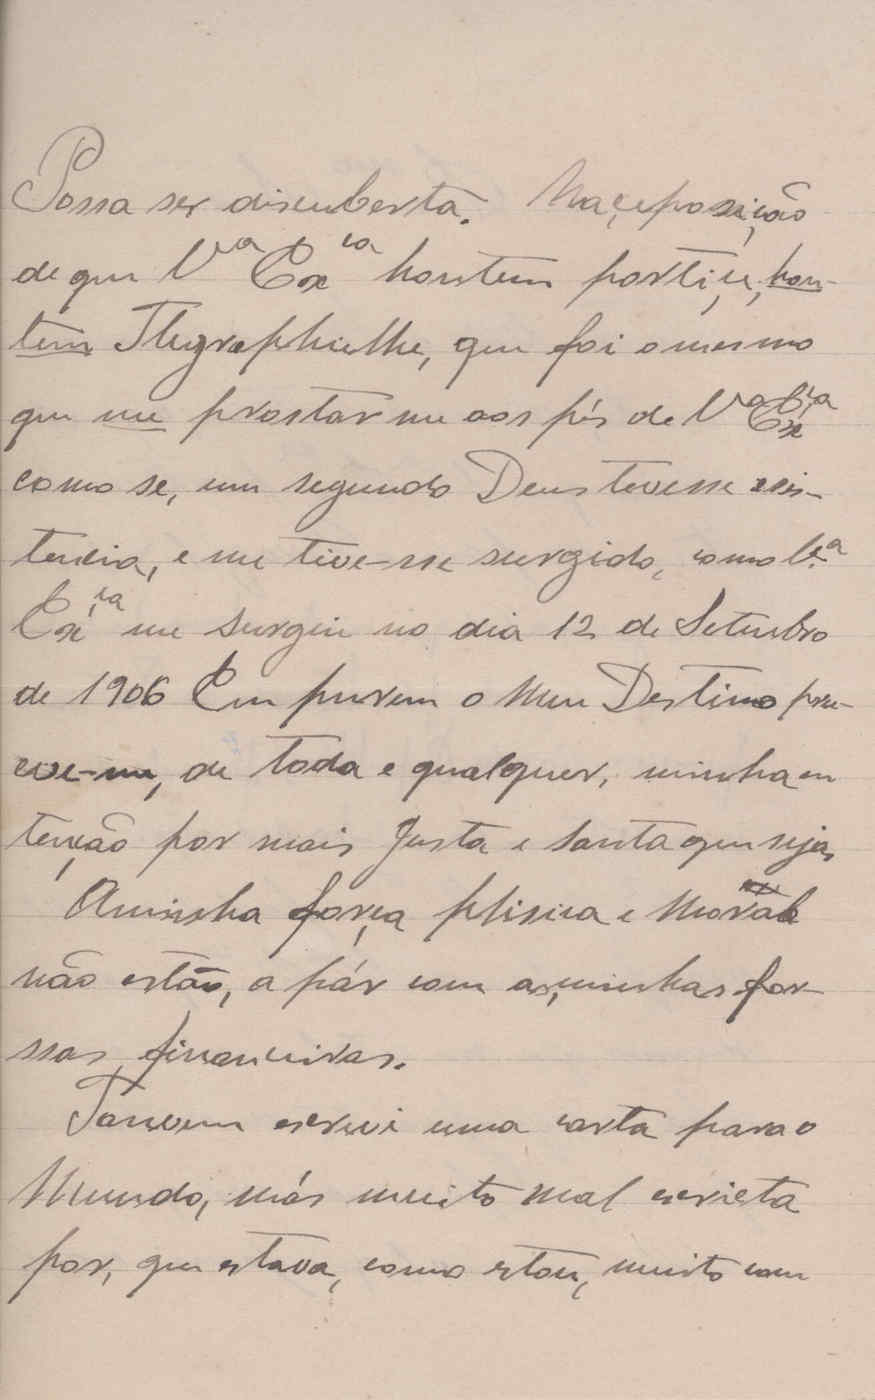 Possa ser discuberta. Na çuposição
de que Vª Exᶜⁱᵃ hontem partiu, hon-
tem Tlegraphielhe, que foi o mesmo
que me prostar me aos pés de Vª Exᶜⁱᵃ
como se, um segundo Deus tevesse exis-
tencia, e me tive-sse surgido, como Vª
Exᶜⁱᵃ me surgiu no dia 12 de Setembro
de 1906 Em purem o Meu Destino
de toda e qualquer, minha en
tenção por mais Justa e Santa que seja,
A minha força phisica e Moral
não estão, a pár com as, minhas for-
ssas financeiras.
Tanvem escrevi uma carta para o
Mundo, más muito mal escrieta
por, que estava, como estou, muito com